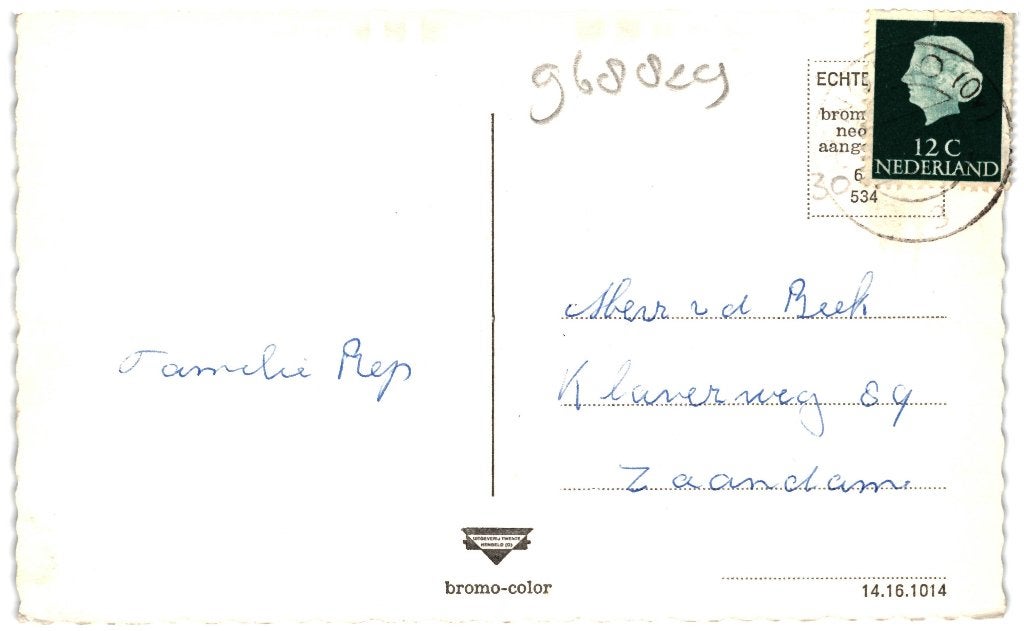 ECHTE
brom
ned
aange
6
534
30
12 C
NEDERLAND
Familie Rep
Meur v d Beek
Klaverweg 89
Zaandam
UITGEVERIJ TWENTE
HENGELO (O)
bromo-color
14.16.1014